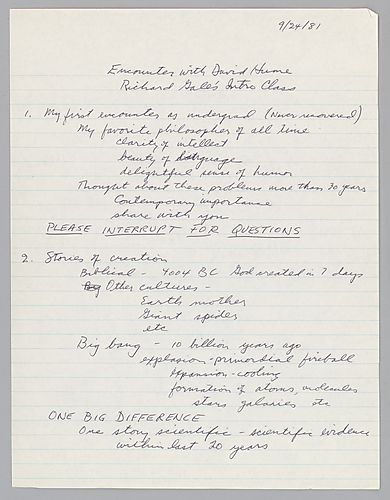 9/24/81
Encounter with David Hume
Richard Gale's Intro Class
1. My first encounter as undergrad (Never recovered)
My favorite philosopher of all time
clarity of intellect
beauty of language
delightful sense of humor
Thought about these problems more than 30 years
Contemporary importance
share with you
PLEASE INTERRUPT FOR QUESTIONS
2. Stories of creation
Biblical - 4004 BC God created in 7 days
Other cultures -
Earth mother
Giant spider
etc
Big bang - 10 billion years ago
explosion - primordial fireball
expansion - cooling
formation of atoms, molecules
stars galaxies etc
ONE BIG DIFFERENCE
One story scientific - scientific evidence
within last 20 years